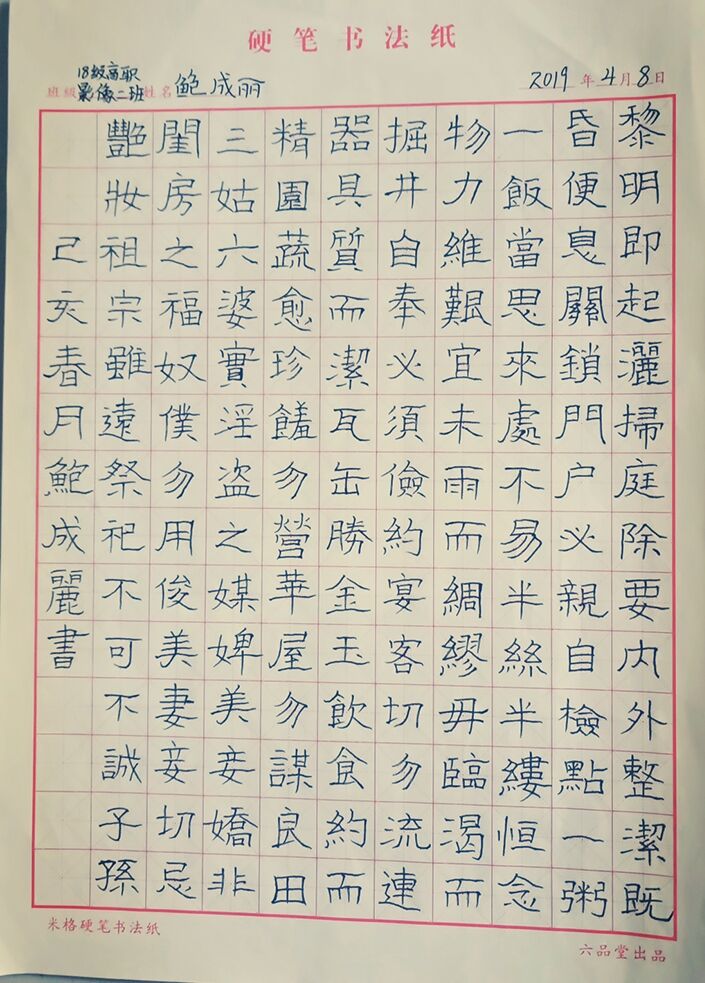 硬笔书法纸
18级高职
班级 影像二班 姓名 鲍成丽 2019年4月8日
黎明即起灑掃庭除要内外整潔既
昏便息關鎖門户必親自檢點一粥
一飯當思來處不易半絲半縷恒念
物力維艱宜未雨而綢繆毋臨渴而
掘井自奉必須儉約宴客切勿流連
器具質而潔瓦缶勝金玉飲食約而
精園蔬愈珍饈勿營華屋勿謀良田
三姑六婆實淫盗之媒婢美妾嬌非
閨房之福奴僕勿用俊美妻妾切忌
艷妝祖宗雖遠祭祀不可不誠子孫
己亥春月鮑成麗書
米格硬笔书法纸
六品堂出品